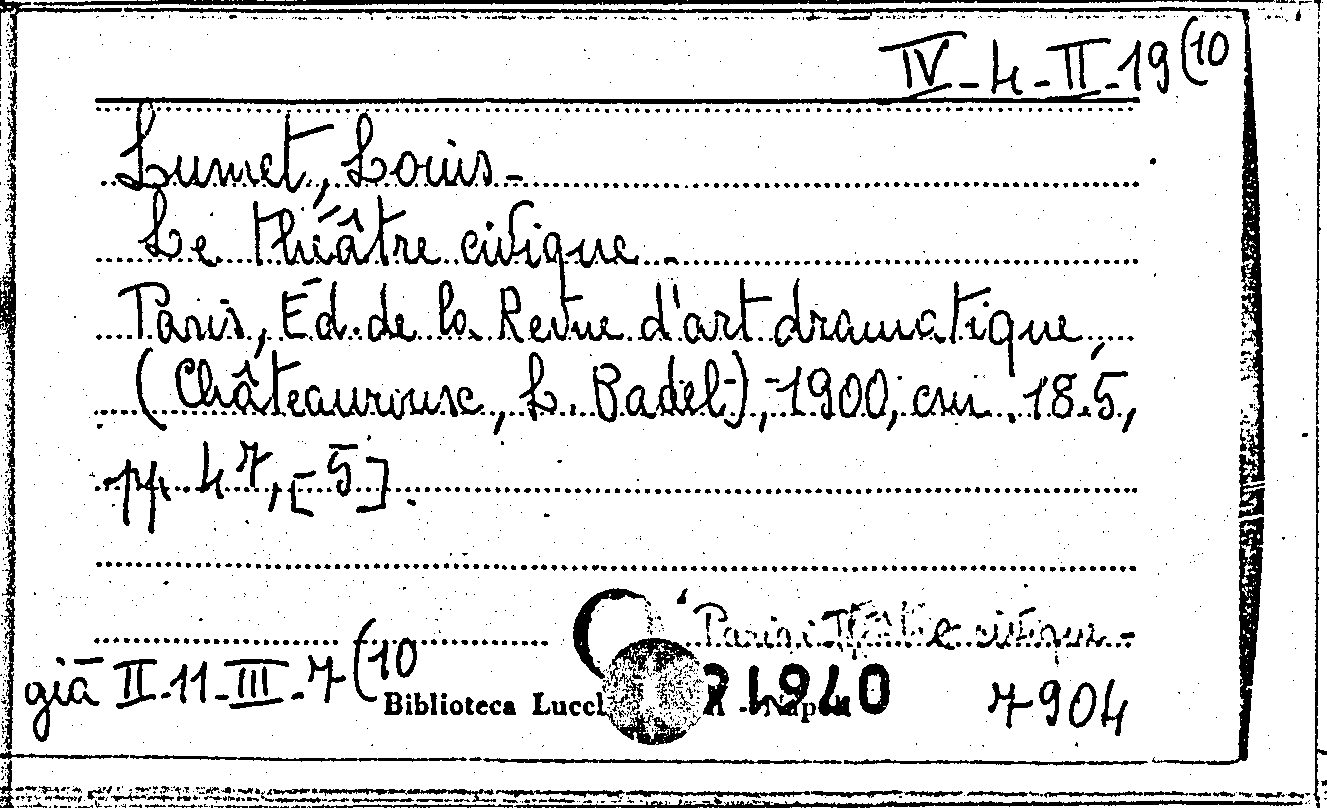 IV-4-II-19(10
Lumet, Louis-
Le théâtre civique -
Paris, Éd. de la Revue d'art dramatique,
(Châteauroux, L. Badel), 1900, cm. 18.5,
pp. 47, [5].
Parigi: Théâtre civique -
già II-11-III-7(10
Biblioteca Lucch
21940
7904